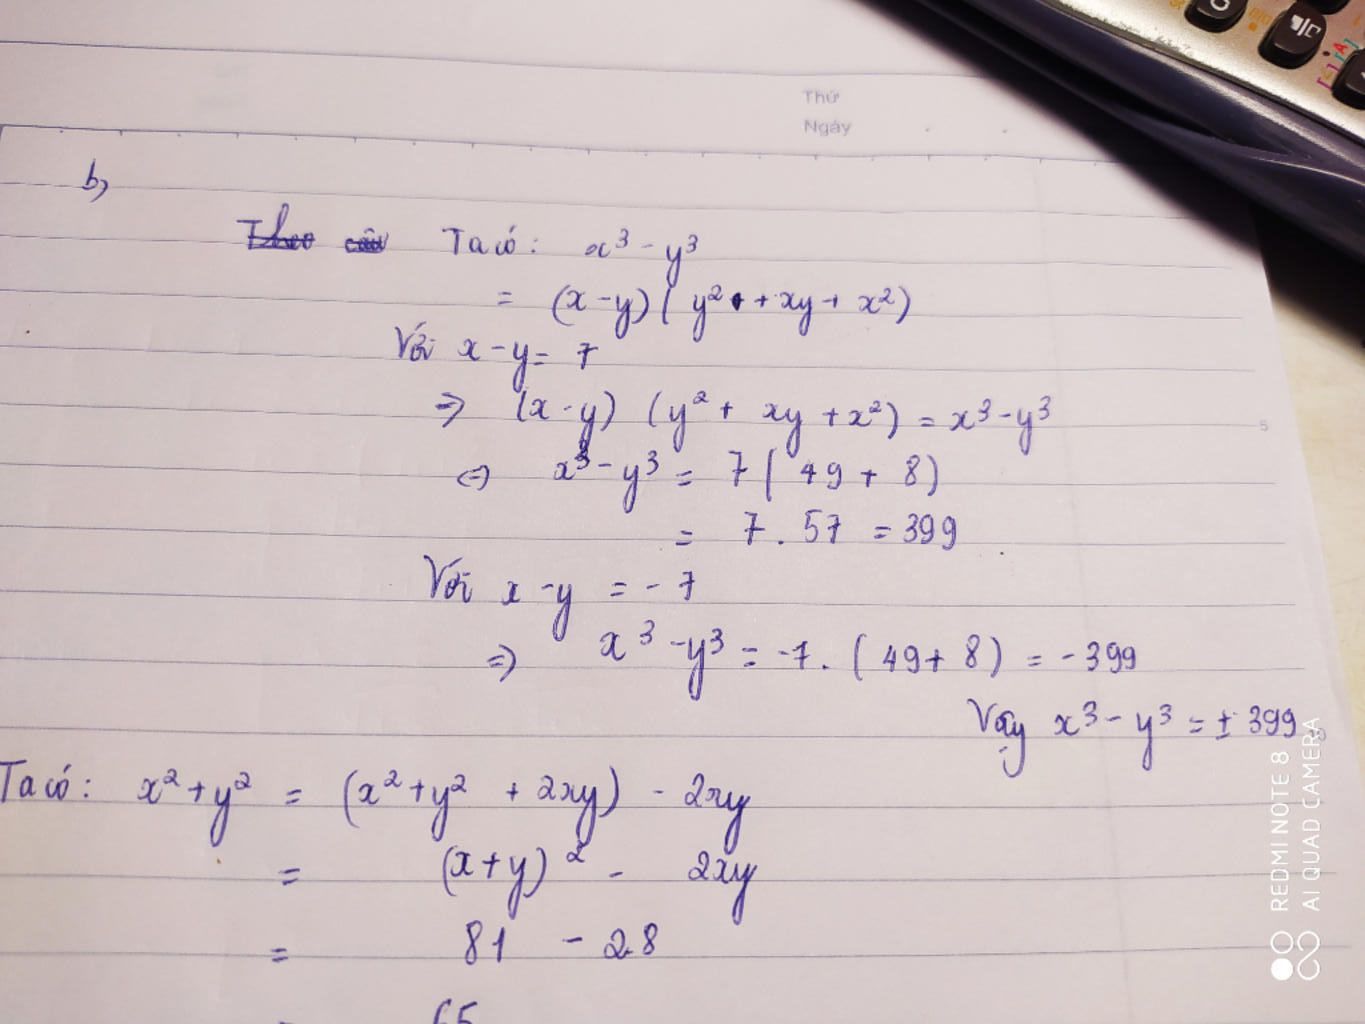 Thứ
Ngày
b,
Theo câu Ta có: x³ - y³
= (x - y) ( y² + xy + x²)
Với x - y = 7
=> (x - y) (y² + xy + x²) = x³ - y³
<=> x³ - y³ = 7 ( 49 + 8)
= 7 . 57 = 399
Với x - y = - 7
=> x³ - y³ = -7. ( 49 + 8) = - 399
Vậy x³ - y³ = ± 399
Ta có: x² + y² = (x² + y² + 2xy) - 2xy
= (x + y)² - 2xy
= 81 - 2.8
= 65
5
REDMI NOTE 8
AI QUAD CAMERA